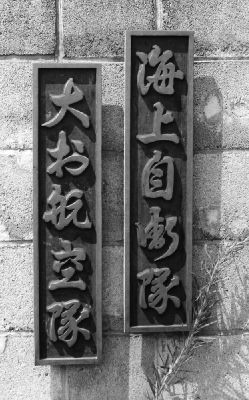 海上自衛隊
大村航空隊